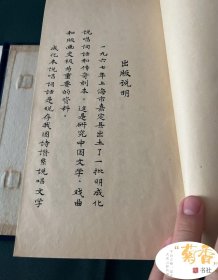 出版说明
一九六七年上海市嘉定县出土了一批明成化
说唱词话和传奇刻本。这是研究中国文学、戏曲
和版画史极为重要的资料。
成化本说唱词话是现存我国诗赞系说唱文学
书社